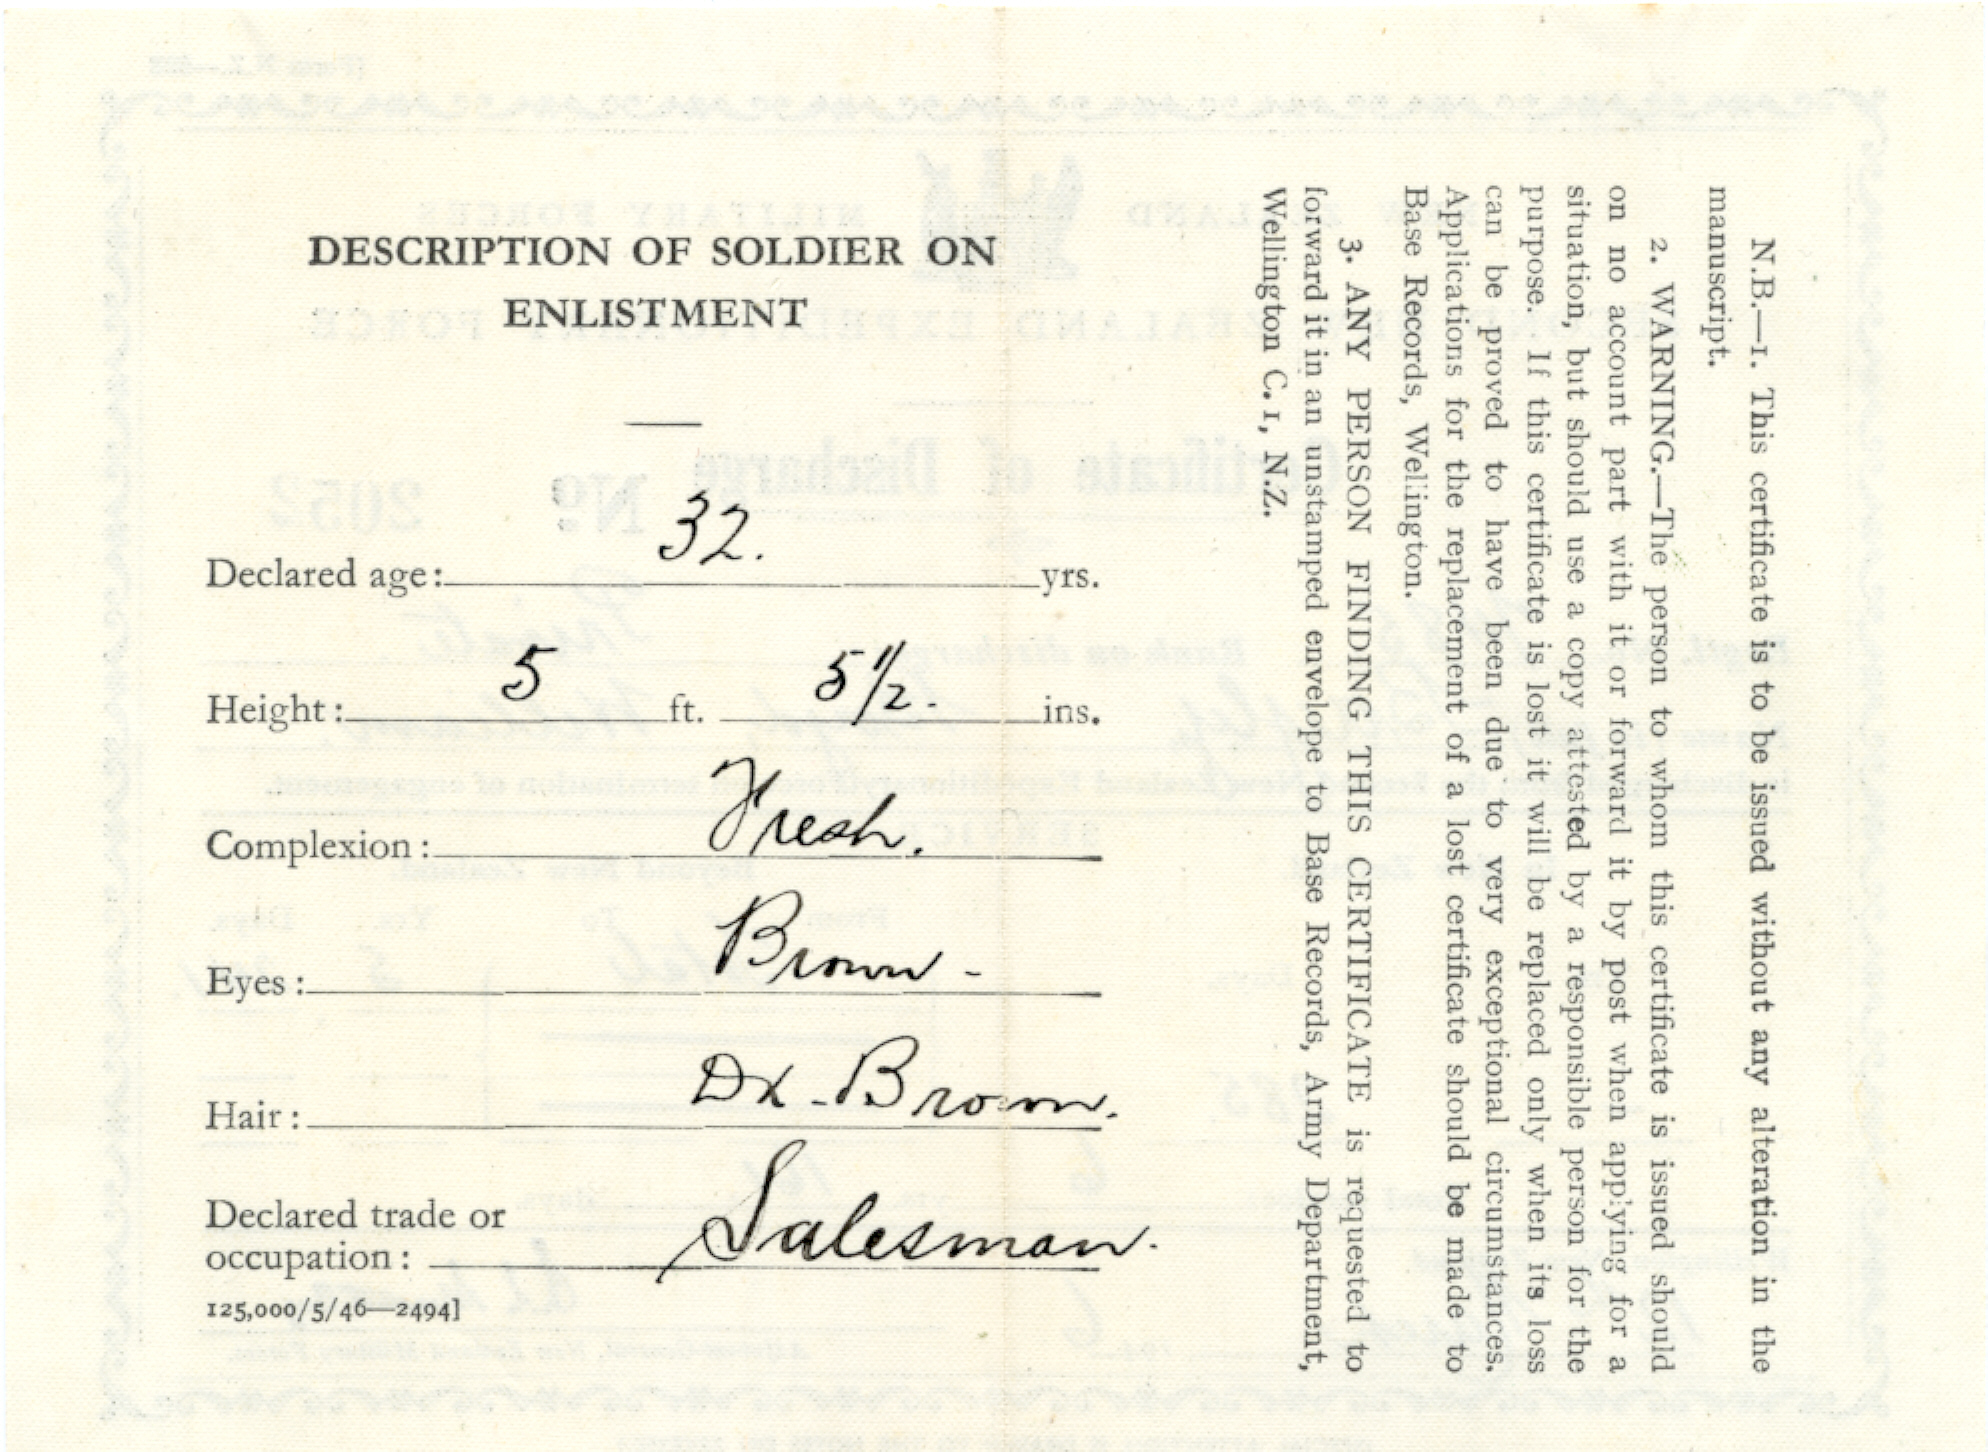 DESCRIPTION OF SOLDIER ON
ENLISTMENT
Declared age: 32. yrs.
Height: 5 ft. 5 1/2. ins.
Complexion: Fresh.
Eyes: Brown -
Hair: Dk - Brown.
Declared trade or
occupation: Salesman.
125,000/5/46—2494]
N.B.—1. This certificate is to be issued without any alteration in the
manuscript.
2. WARNING.—The person to whom this certificate is issued should
on no account part with it or forward it by post when applying for a
situation, but should use a copy attested by a responsible person for the
purpose. If this certificate is lost it will be replaced only when its loss
can be proved to have been due to very exceptional circumstances.
Applications for the replacement of a lost certificate should be made to
Base Records, Wellington.
3. ANY PERSON FINDING THIS CERTIFICATE is requested to
forward it in an unstamped envelope to Base Records, Army Department,
Wellington C. 1, N.Z.